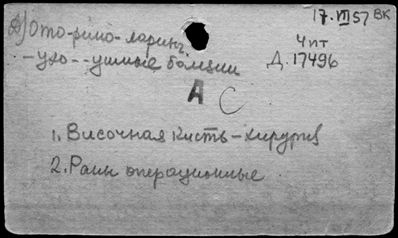 17. VIII 57 ВК
А) Ото-рино-ларинг.
Чпт
- ухо - ушные болезни
Д. 17496
А С
1. Височная кисть - хирургия
2. Раны операционные